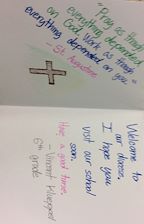 "Pray as though
everything depended
on God. Work as though
everything depended on you."
- St. Augustine
Welcome to
our diocese.
I hope you
visit our school
soon.
Have a good time.
- Vincent
6th grade